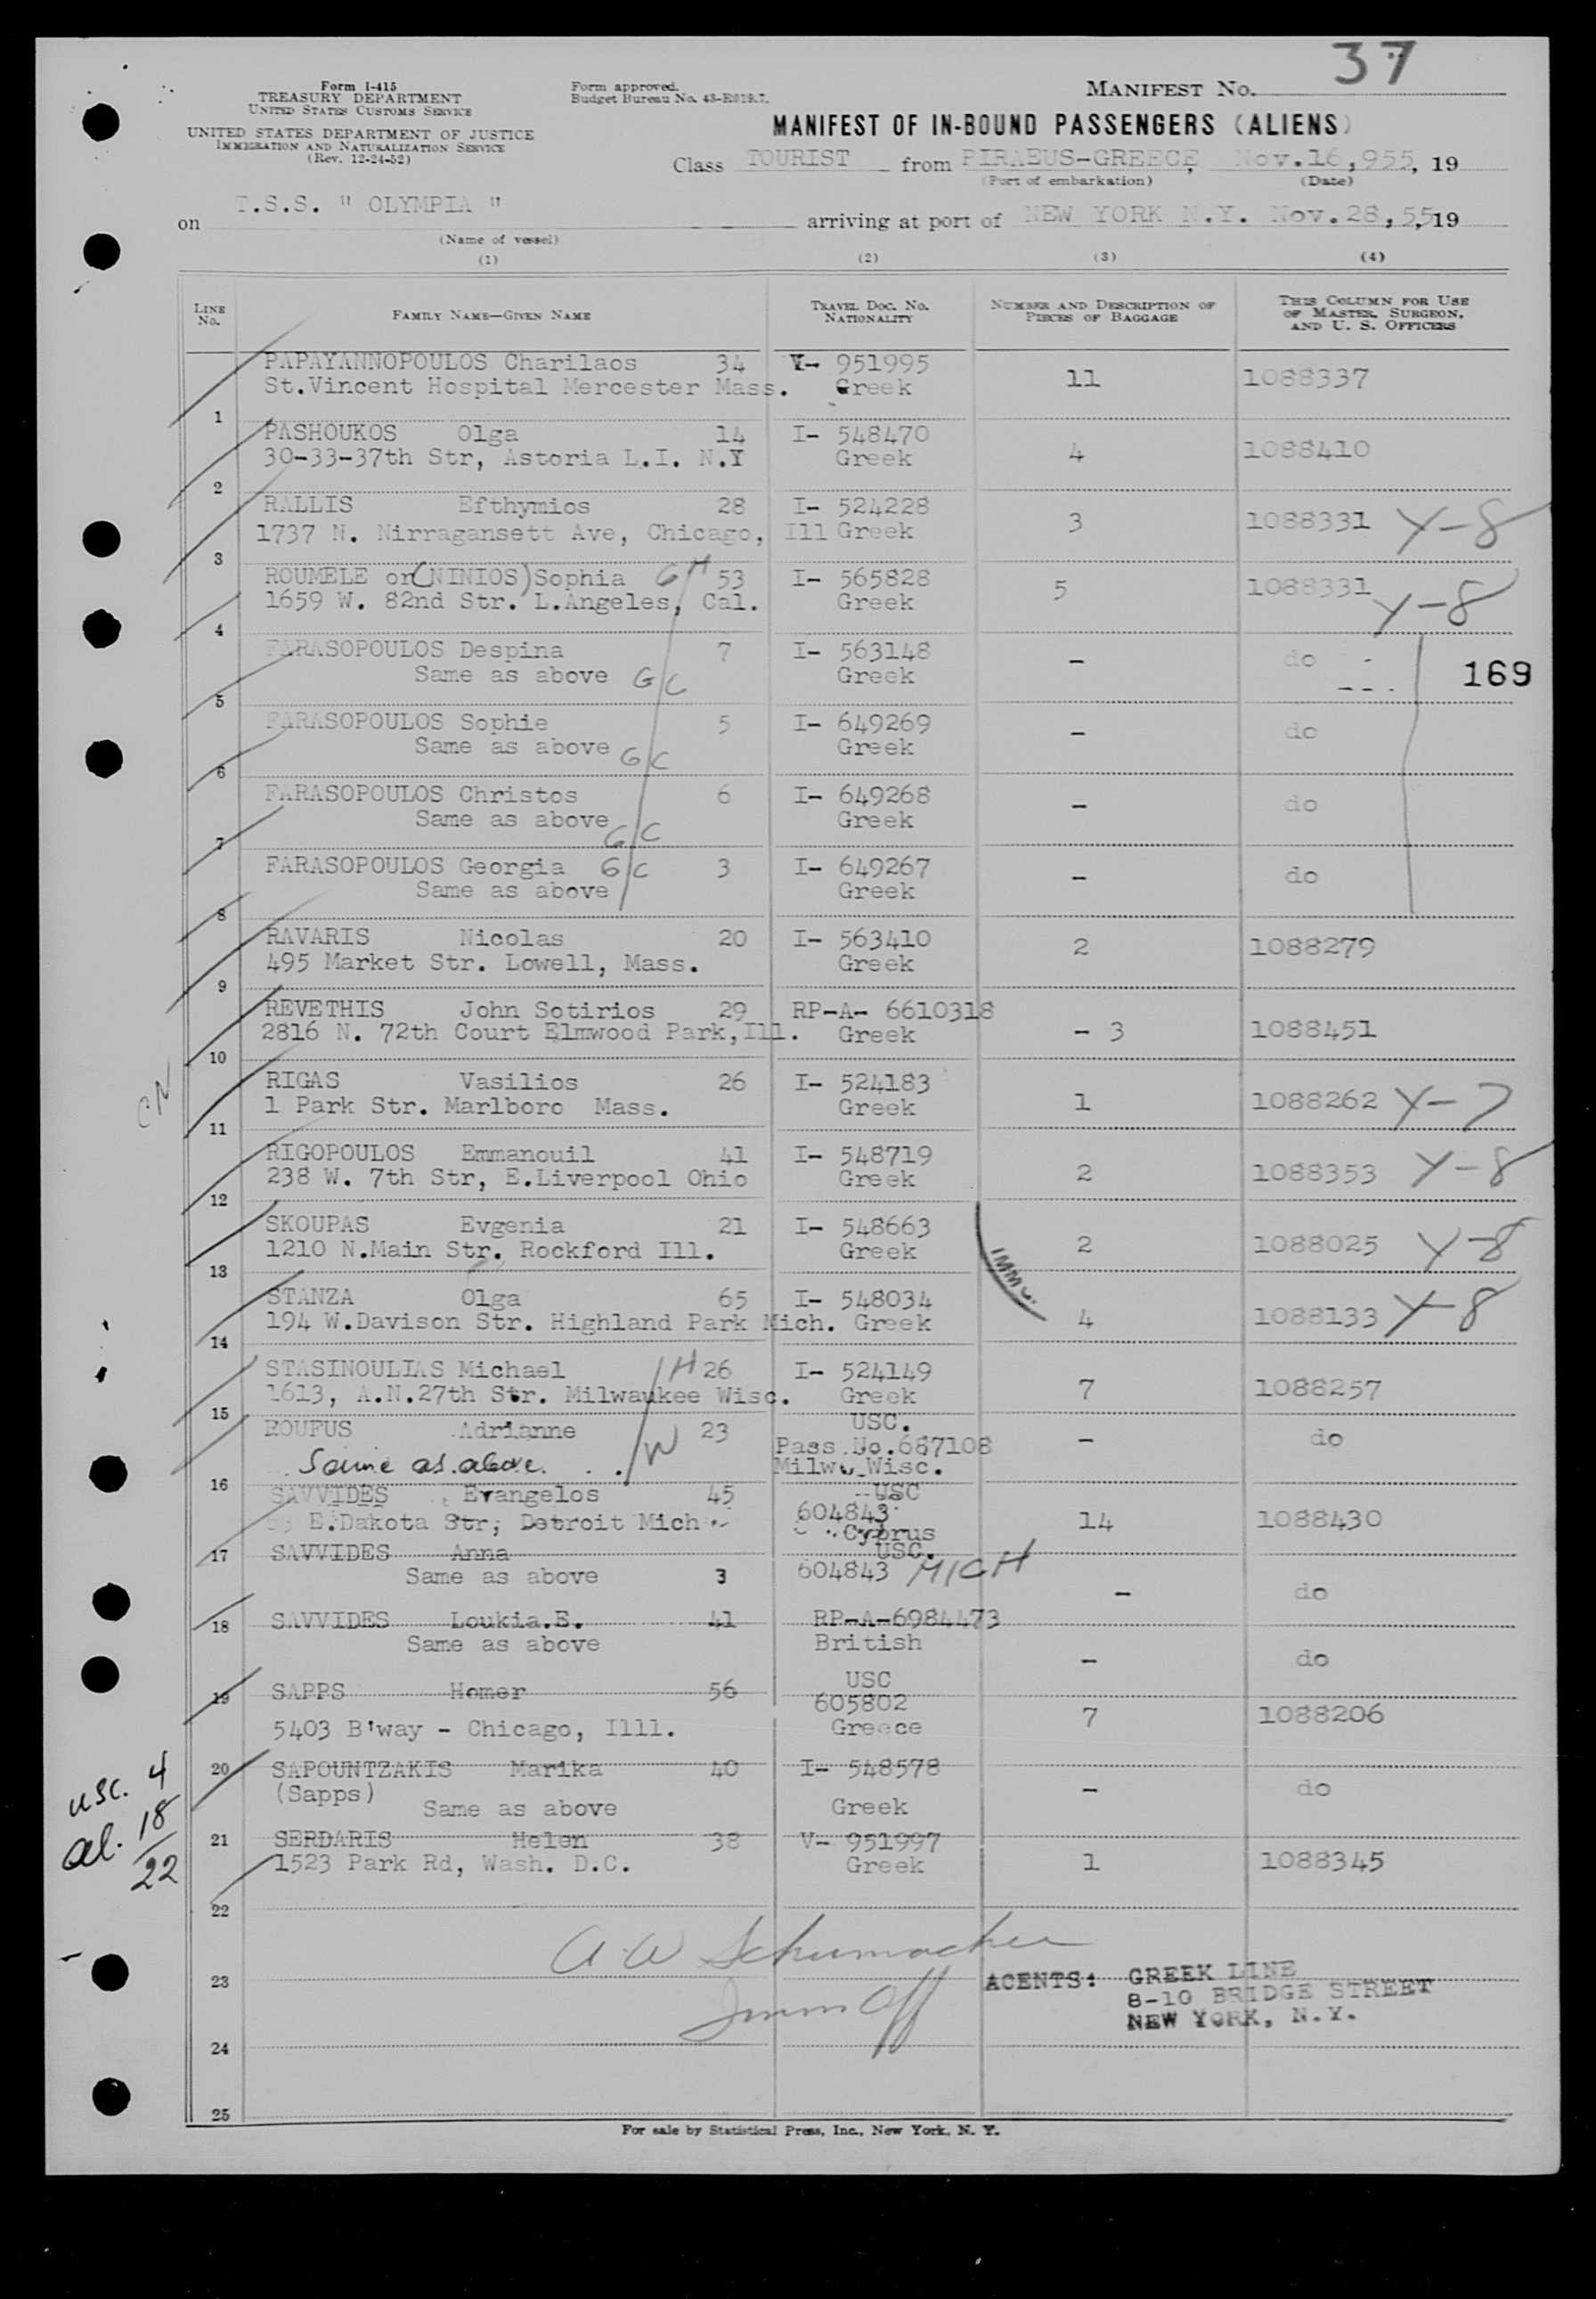 37
Form I-415
TREASURY DEPARTMENT
UNITED STATES CUSTOMS SERVICE
UNITED STATES DEPARTMENT OF JUSTICE
IMMIGRATION AND NATURALIZATION SERVICE
(Rev. 12-24-52)
Form approved.
Budget Bureau No.
MANIFEST NO.
MANIFEST OF IN-BOUND PASSENGERS (ALIENS)
Class TOURIST from PIRAEUS-GREECE, Nov.16,955, 19
(Port of embarkation) (Date)
on T.S.S. " OLYMPIA " arriving at port of NEW YORK N.Y. Nov.28,55,19
(Name of vessel)
(1) (2) (3) (4)
LINE No. FAMILY NAME—GIVEN NAME TRAVEL DOC. NO. NATIONALITY NUMBER AND DESCRIPTION OF PIECES OF BAGGAGE THIS COLUMN FOR USE OF MASTER, SURGEON, AND U. S. OFFICERS
PAPAYANNOPOULOS Charilaos 34 V- 951995
St.Vincent Hospital Mercester Mass. Greek 11 1088337
1
PASHOUKOS Olga 14 I- 548470
30-33-37th Str, Astoria L.I. N.Y Greek 4 1088410
2
RALLIS Efthymios 28 I- 524228
1737 N. Nirragansett Ave, Chicago, Ill Greek 3 1088331 Y-8
3
ROUMELE or (NINIOS) Sophia GH 53 I- 565828
1659 W. 82nd Str. L.Angeles, Cal. Greek 5 1088331 Y-8
4
FARASOPOULOS Despina 7 I- 563148
Same as above G/C Greek - do 169
5
FARASOPOULOS Sophie 5 I- 649269
Same as above G/C Greek - do
6
FARASOPOULOS Christos 6 I- 649268
Same as above G/C Greek - do
7
FARASOPOULOS Georgia G/C 3 I- 649267
Same as above Greek - do
8
RAVARIS Nicolas 20 I- 563410
495 Market Str. Lowell, Mass. Greek 2 1088279
9
REVETHIS John Sotirios 29 RP-A- 6610318
2816 N. 72th Court Elmwood Park,Ill. Greek - 3 1088451
10
RIGAS Vasilios 26 I- 524183
1 Park Str. Marlboro Mass. Greek 1 1088262 Y-7
11
RIGOPOULOS Emmanouil 41 I- 548719
238 W. 7th Str, E.Liverpool Ohio Greek 2 1088353 Y-8
12
SKOUPAS Evgenia 21 I- 548663
1210 N.Main Str. Rockford Ill. Greek 2 1088025 Y-8
13
STANZA Olga 65 I- 548034
194 W.Davison Str. Highland Park Mich. Greek 4 1088133 Y-8
14
STASINOULIAS Michael H 26 I- 524149
1613, A.N.27th Str. Milwaukee Wisc. Greek 7 1088257
15
ROUFUS Adrianne W 23 USC.
Pass.No.687108 - do
Same as above. Milw. Wisc.
16
SAVVIDES Evangelos 45 USC
604843
E.Dakota Str, Detroit Mich Cyprus 14 1088430
17
SAVVIDES Anna USC.
Same as above 3 604843 MICH - do
18
SAVVIDES Loukia.E. 41 RP-A-6984473
Same as above British - do
19
SAPPS Homer 56 USC
605802
5403 B'way - Chicago, Illl. Greece 7 1088206
20
SAPOUNTZAKIS Marika 40 I- 548578
(Sapps)
Same as above Greek - do
21
SERDARIS Helen 38 V- 951997
1523 Park Rd, Wash. D.C. Greek 1 1088345
22
IMM
usc. 4
al. 18
22
A.W Schumacher
Imm Off
23
AGENTS: GREEK LINE
8-10 BRIDGE STREET
NEW YORK, N.Y.
24
25
For sale by Statistical Press, Inc., New York, N. Y.